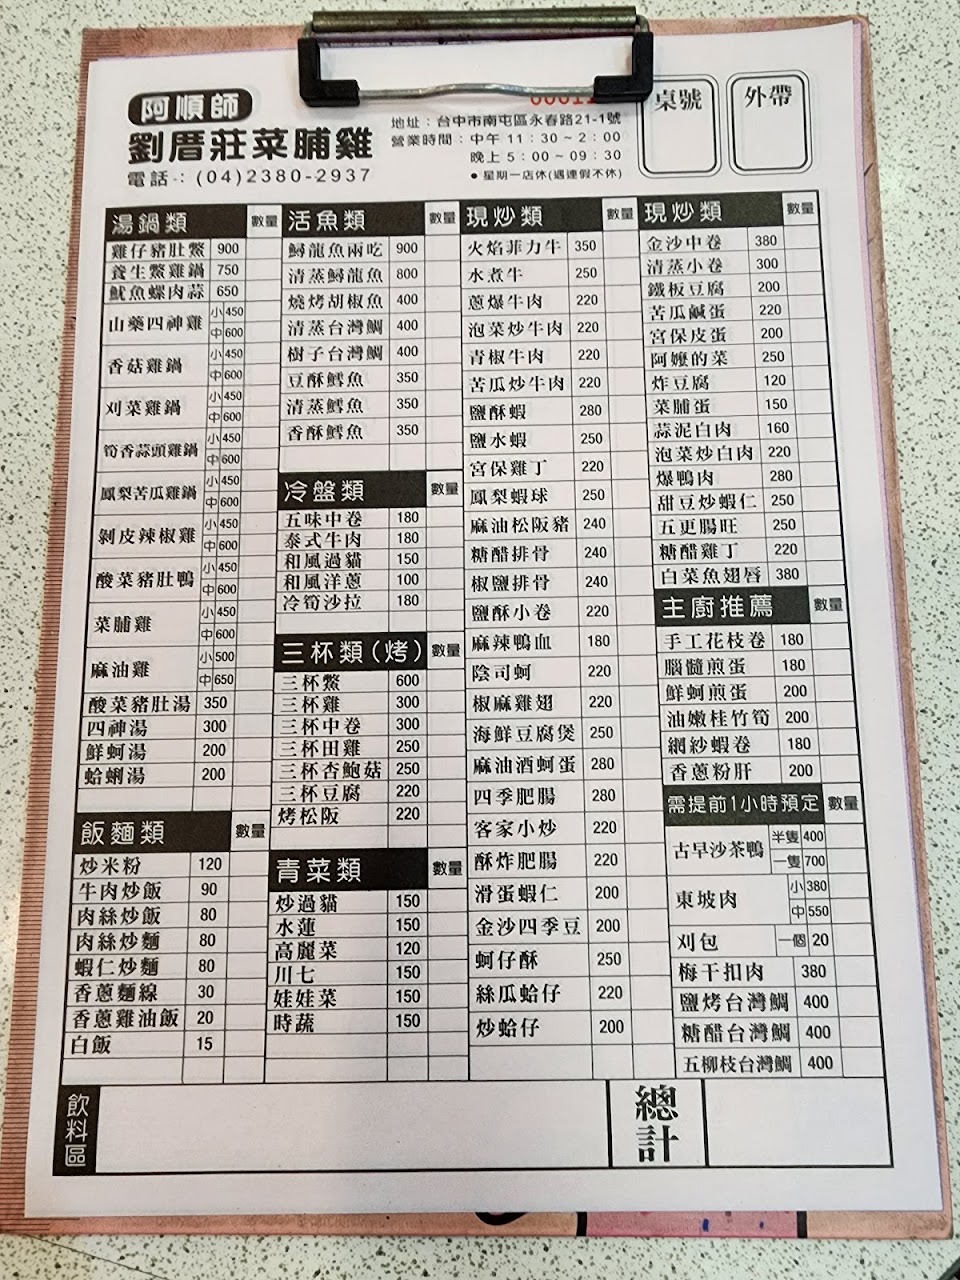 阿順師
劉厝莊菜脯雞
電話：(04)2380-2937
地址：台中市南屯區永春路21-1號
營業時間：中午 11：30～2：00
晚上 5：00～09：30
●星期一店休(遇連假不休)
桌號
外帶
湯鍋類 數量
雞仔豬肚鱉 900
養生鱉雞鍋 750
魷魚螺肉蒜 650
山藥四神雞 小450 中600
香菇雞鍋 小450 中600
刈菜雞鍋 小450 中600
筍香蒜頭雞鍋 小450 中600
鳳梨苦瓜雞鍋 小450 中600
剝皮辣椒雞 小450 中600
酸菜豬肚鴨 小450 中600
菜脯雞 小450 中600
麻油雞 小500 中650
酸菜豬肚湯 350
四神湯 300
鮮蚵湯 200
蛤蜊湯 200
飯麵類 數量
炒米粉 120
牛肉炒飯 90
肉絲炒飯 80
肉絲炒麵 80
蝦仁炒麵 80
香蔥麵線 30
香蔥雞油飯 20
白飯 15
活魚類 數量
鱘龍魚兩吃 900
清蒸鱘龍魚 800
燒烤胡椒魚 400
清蒸台灣鯛 400
樹子台灣鯛 400
豆酥鱈魚 350
清蒸鱈魚 350
香酥鱈魚 350
冷盤類 數量
五味中卷 180
泰式牛肉 180
和風過貓 150
和風洋蔥 100
冷筍沙拉 180
三杯類(烤) 數量
三杯鱉 600
三杯雞 300
三杯中卷 300
三杯田雞 250
三杯杏鮑菇 250
三杯豆腐 220
烤松阪 220
青菜類 數量
炒過貓 150
水蓮 150
高麗菜 120
川七 150
娃娃菜 150
時蔬 150
現炒類 數量
火焰菲力牛 350
水煮牛 250
蔥爆牛肉 220
泡菜炒牛肉 220
青椒牛肉 220
苦瓜炒牛肉 220
鹽酥蝦 280
鹽水蝦 250
宮保雞丁 220
鳳梨蝦球 250
麻油松阪豬 240
糖醋排骨 240
椒鹽排骨 240
鹽酥小卷 220
麻辣鴨血 180
陰司蚵 220
椒麻雞翅 220
海鮮豆腐煲 250
麻油酒蚵蛋 280
四季肥腸 280
客家小炒 220
酥炸肥腸 220
滑蛋蝦仁 200
金沙四季豆 200
蚵仔酥 250
絲瓜蛤仔 220
炒蛤仔 200
現炒類 數量
金沙中卷 380
清蒸小卷 300
鐵板豆腐 200
苦瓜鹹蛋 220
宮保皮蛋 200
阿嬤的菜 250
炸豆腐 120
菜脯蛋 150
蒜泥白肉 160
泡菜炒白肉 220
爆鴨肉 280
甜豆炒蝦仁 250
五更腸旺 250
糖醋雞丁 220
白菜魚翅唇 380
主廚推薦 數量
手工花枝卷 180
腦髓煎蛋 180
鮮蚵煎蛋 200
油嫩桂竹筍 200
網紗蝦卷 180
香蔥粉肝 200
需提前1小時預定 數量
古早沙茶鴨 半隻400 一隻700
東坡肉 小380 中550
刈包 一個20
梅干扣肉 380
鹽烤台灣鯛 400
糖醋台灣鯛 400
五柳枝台灣鯛 400
飲料區
總計